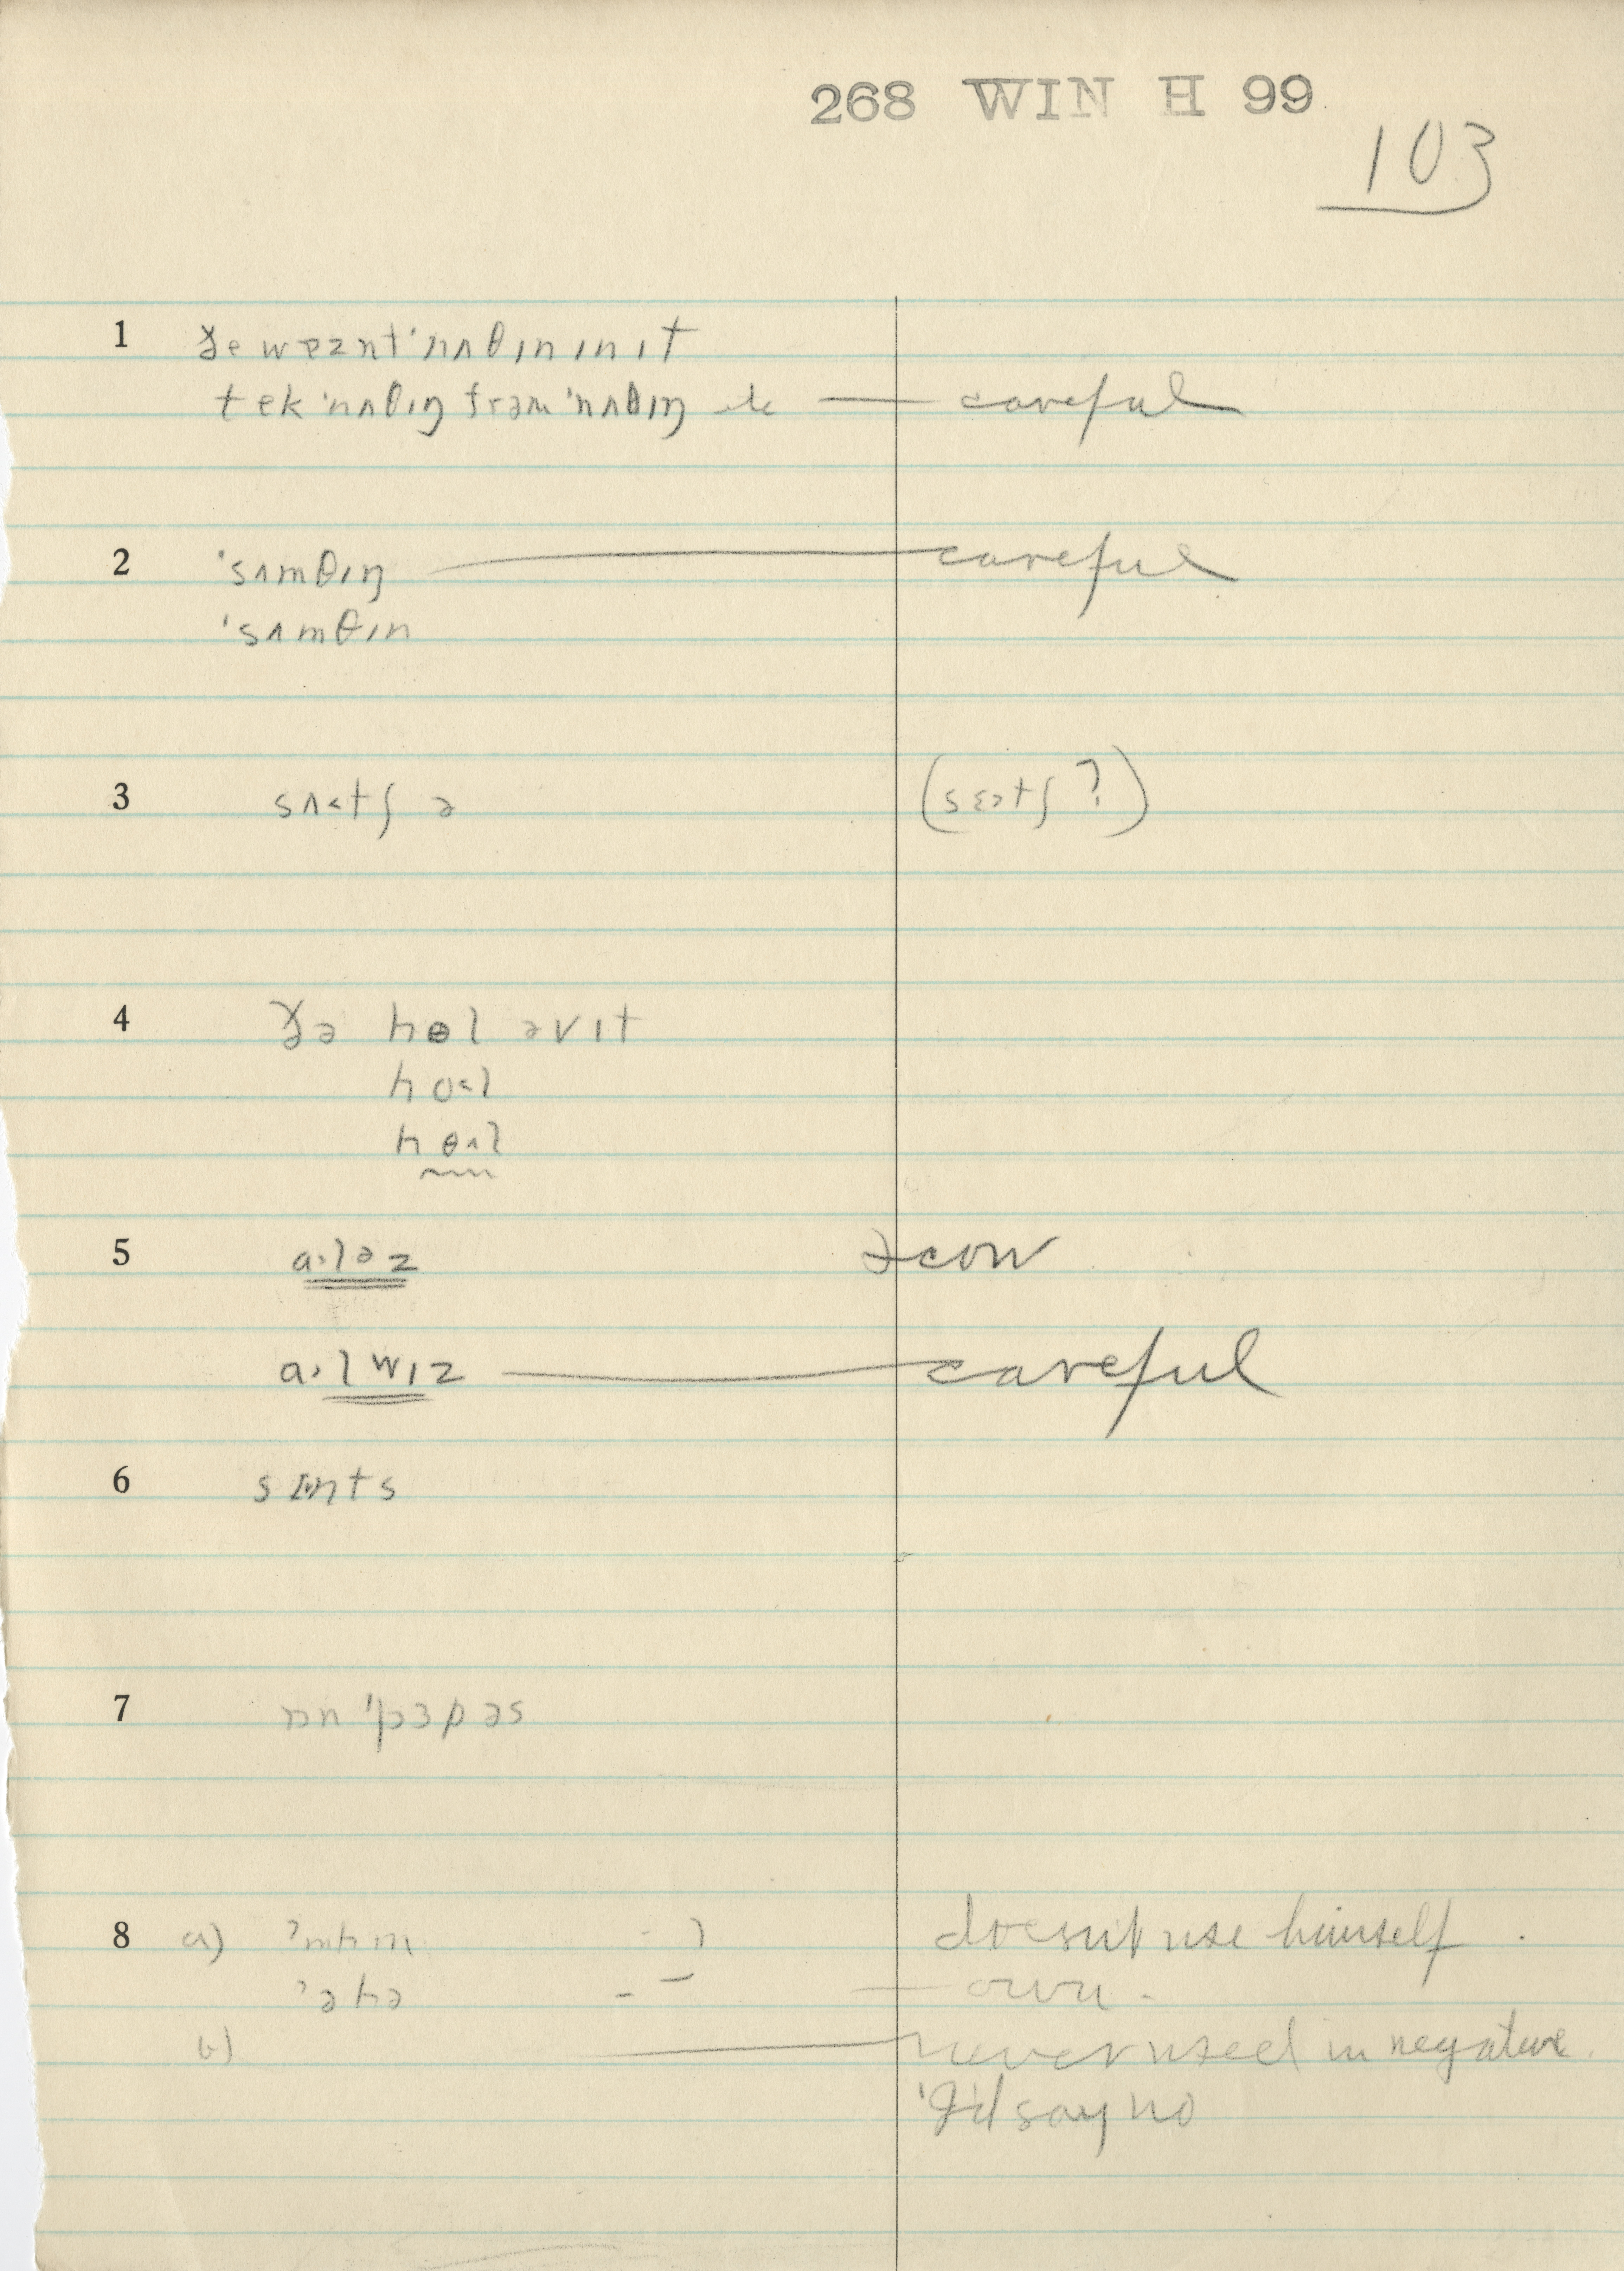 268 WIN H 99
103
1 ðe wɐznt 'nʌθɪn ɪn ɪt
tek 'nʌθɪŋ frəm 'nʌθɪŋ etc — careful
2 'sʌmθɪŋ — careful
'sʌmθɪn
3 sʌ˂tʃ ə (sɛ˃tʃ ?)
4 ðə hɵl əv ɪt
ho˂l
hɵ˄l
5 a.ləz
a.lwɪz — careful
6 s nts
7
8 a) 'mhm doesn't use himself .
'əhə — own .
b) — never used in negative .
'I'd say no